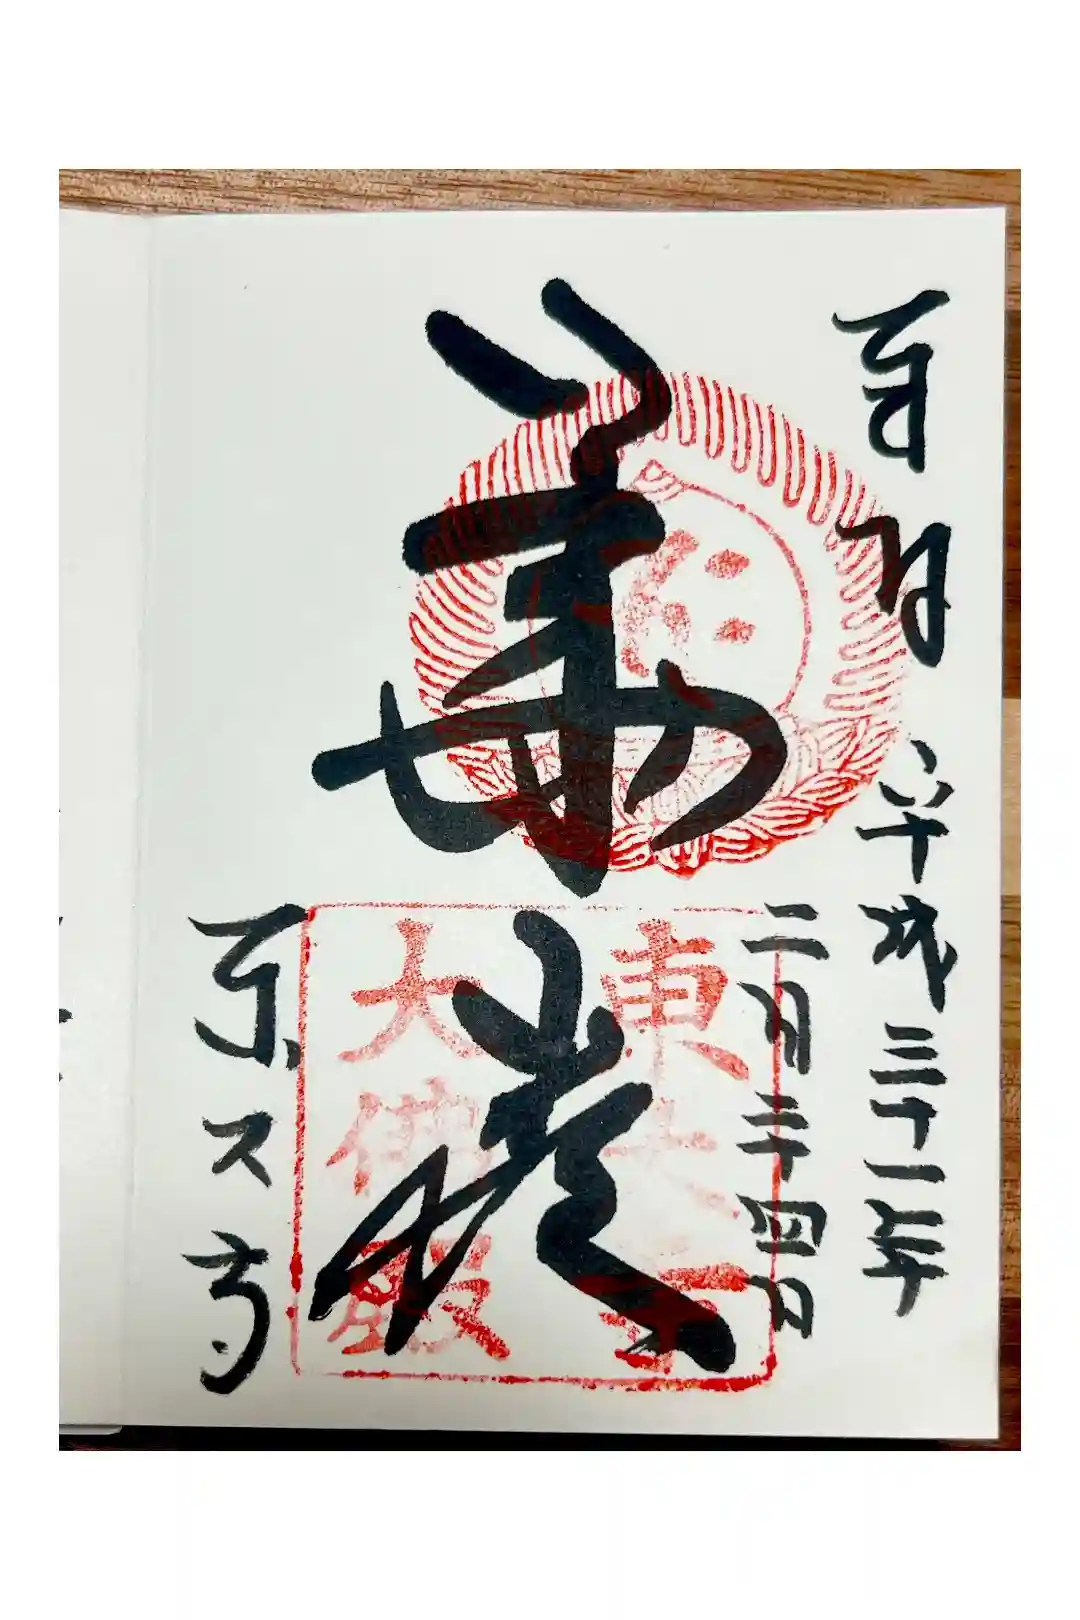 奉拝
平成三十一年
二月二十四日
華厳
東大寺
大佛殿
東大寺